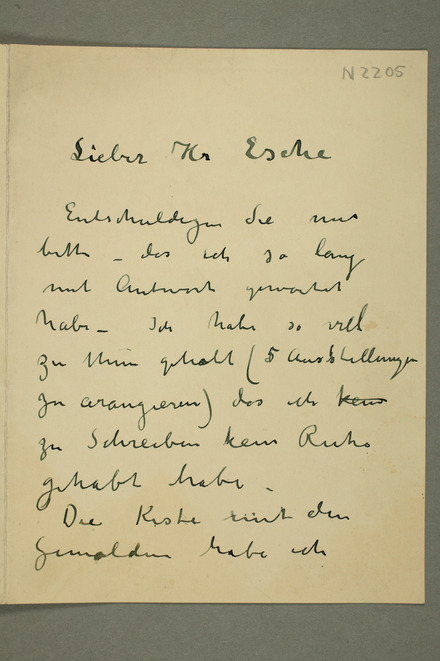 N 2205
Lieber Hr Esche
Entschuldigen Sie mir
bitte – das ich so lang
mit Antwort gewartet
habe – Ich habe so viel
zu thun gehabt (5 Ausstellungen
zu arangieren) das ich kein
zu Schreiben kein Ruhe
gehabt habe –
Die Kiste mit den
Gemalden habe ich